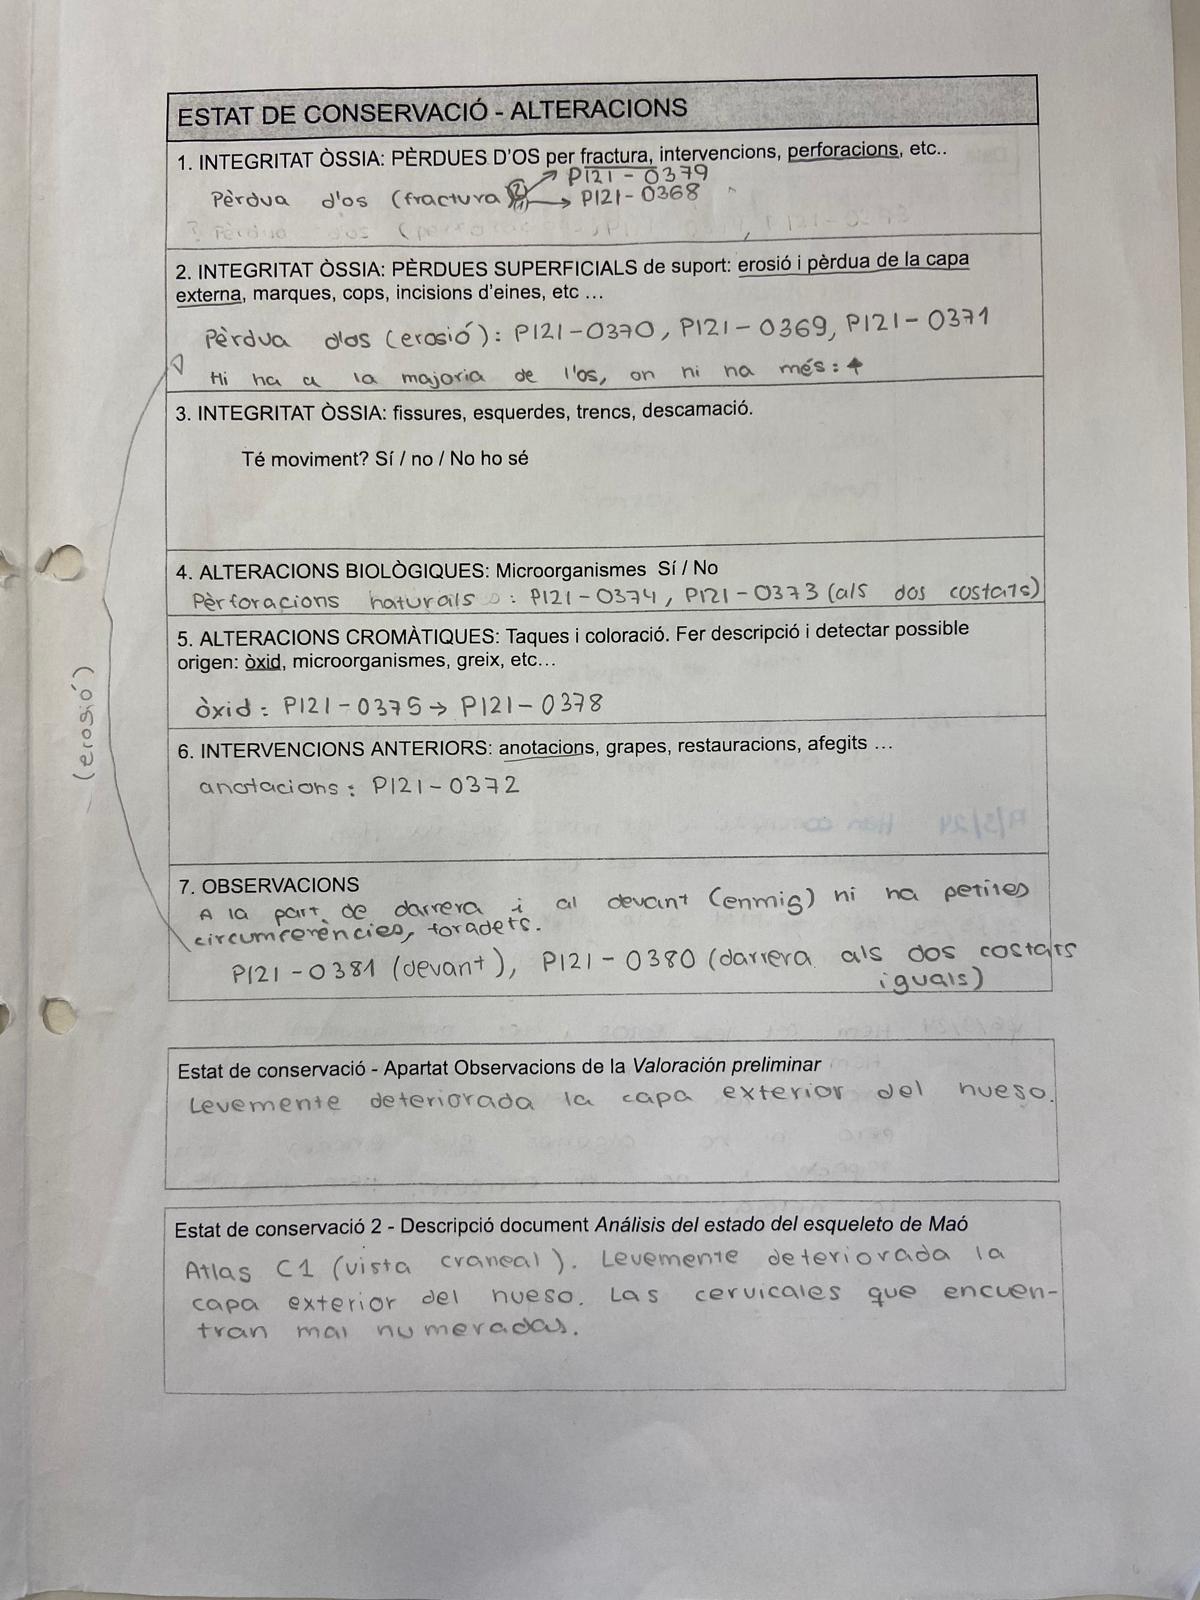 ESTAT DE CONSERVACIÓ - ALTERACIONS
1. INTEGRITAT ÒSSIA: PÈRDUES D'OS per fractura, intervencions, perforacions, etc..
P121-0379
Pèrdua d'os (fractura) → P121-0368
2. INTEGRITAT ÒSSIA: PÈRDUES SUPERFICIALS de suport: erosió i pèrdua de la capa
externa, marques, cops, incisions d'eines, etc ...
Pèrdua d'os (erosió): P121-0370, P121-0369, P121-0371
Hi ha a la majoria de l'os, on ni na més: ↑
3. INTEGRITAT ÒSSIA: fissures, esquerdes, trencs, descamació.
Té moviment? Sí / no / No ho sé
4. ALTERACIONS BIOLÒGIQUES: Microorganismes Sí / No
Pèrforacions naturals : P121-0374, P121-0373 (als dos costats)
5. ALTERACIONS CROMÀTIQUES: Taques i coloració. Fer descripció i detectar possible
origen: òxid, microorganismes, greix, etc...
òxid: P121-0375 → P121-0378
(erosió)
6. INTERVENCIONS ANTERIORS: anotacions, grapes, restauracions, afegits ...
anotacions: P121-0372
7. OBSERVACIONS
A la part de darrera i al devant (enmig) ni ha petites
circumferències, foradets.
P121-0381 (devant), P121-0380 (darrera als dos costats
iguals)
Estat de conservació - Apartat Observacions de la Valoración preliminar
Levemente deteriorada la capa exterior del hueso.
Estat de conservació 2 - Descripció document Análisis del estado del esqueleto de Maó
Atlas C1 (vista craneal). Levemente deteriorada la
capa exterior del hueso. Las cervicales que encuen-
tran mal numeradas.